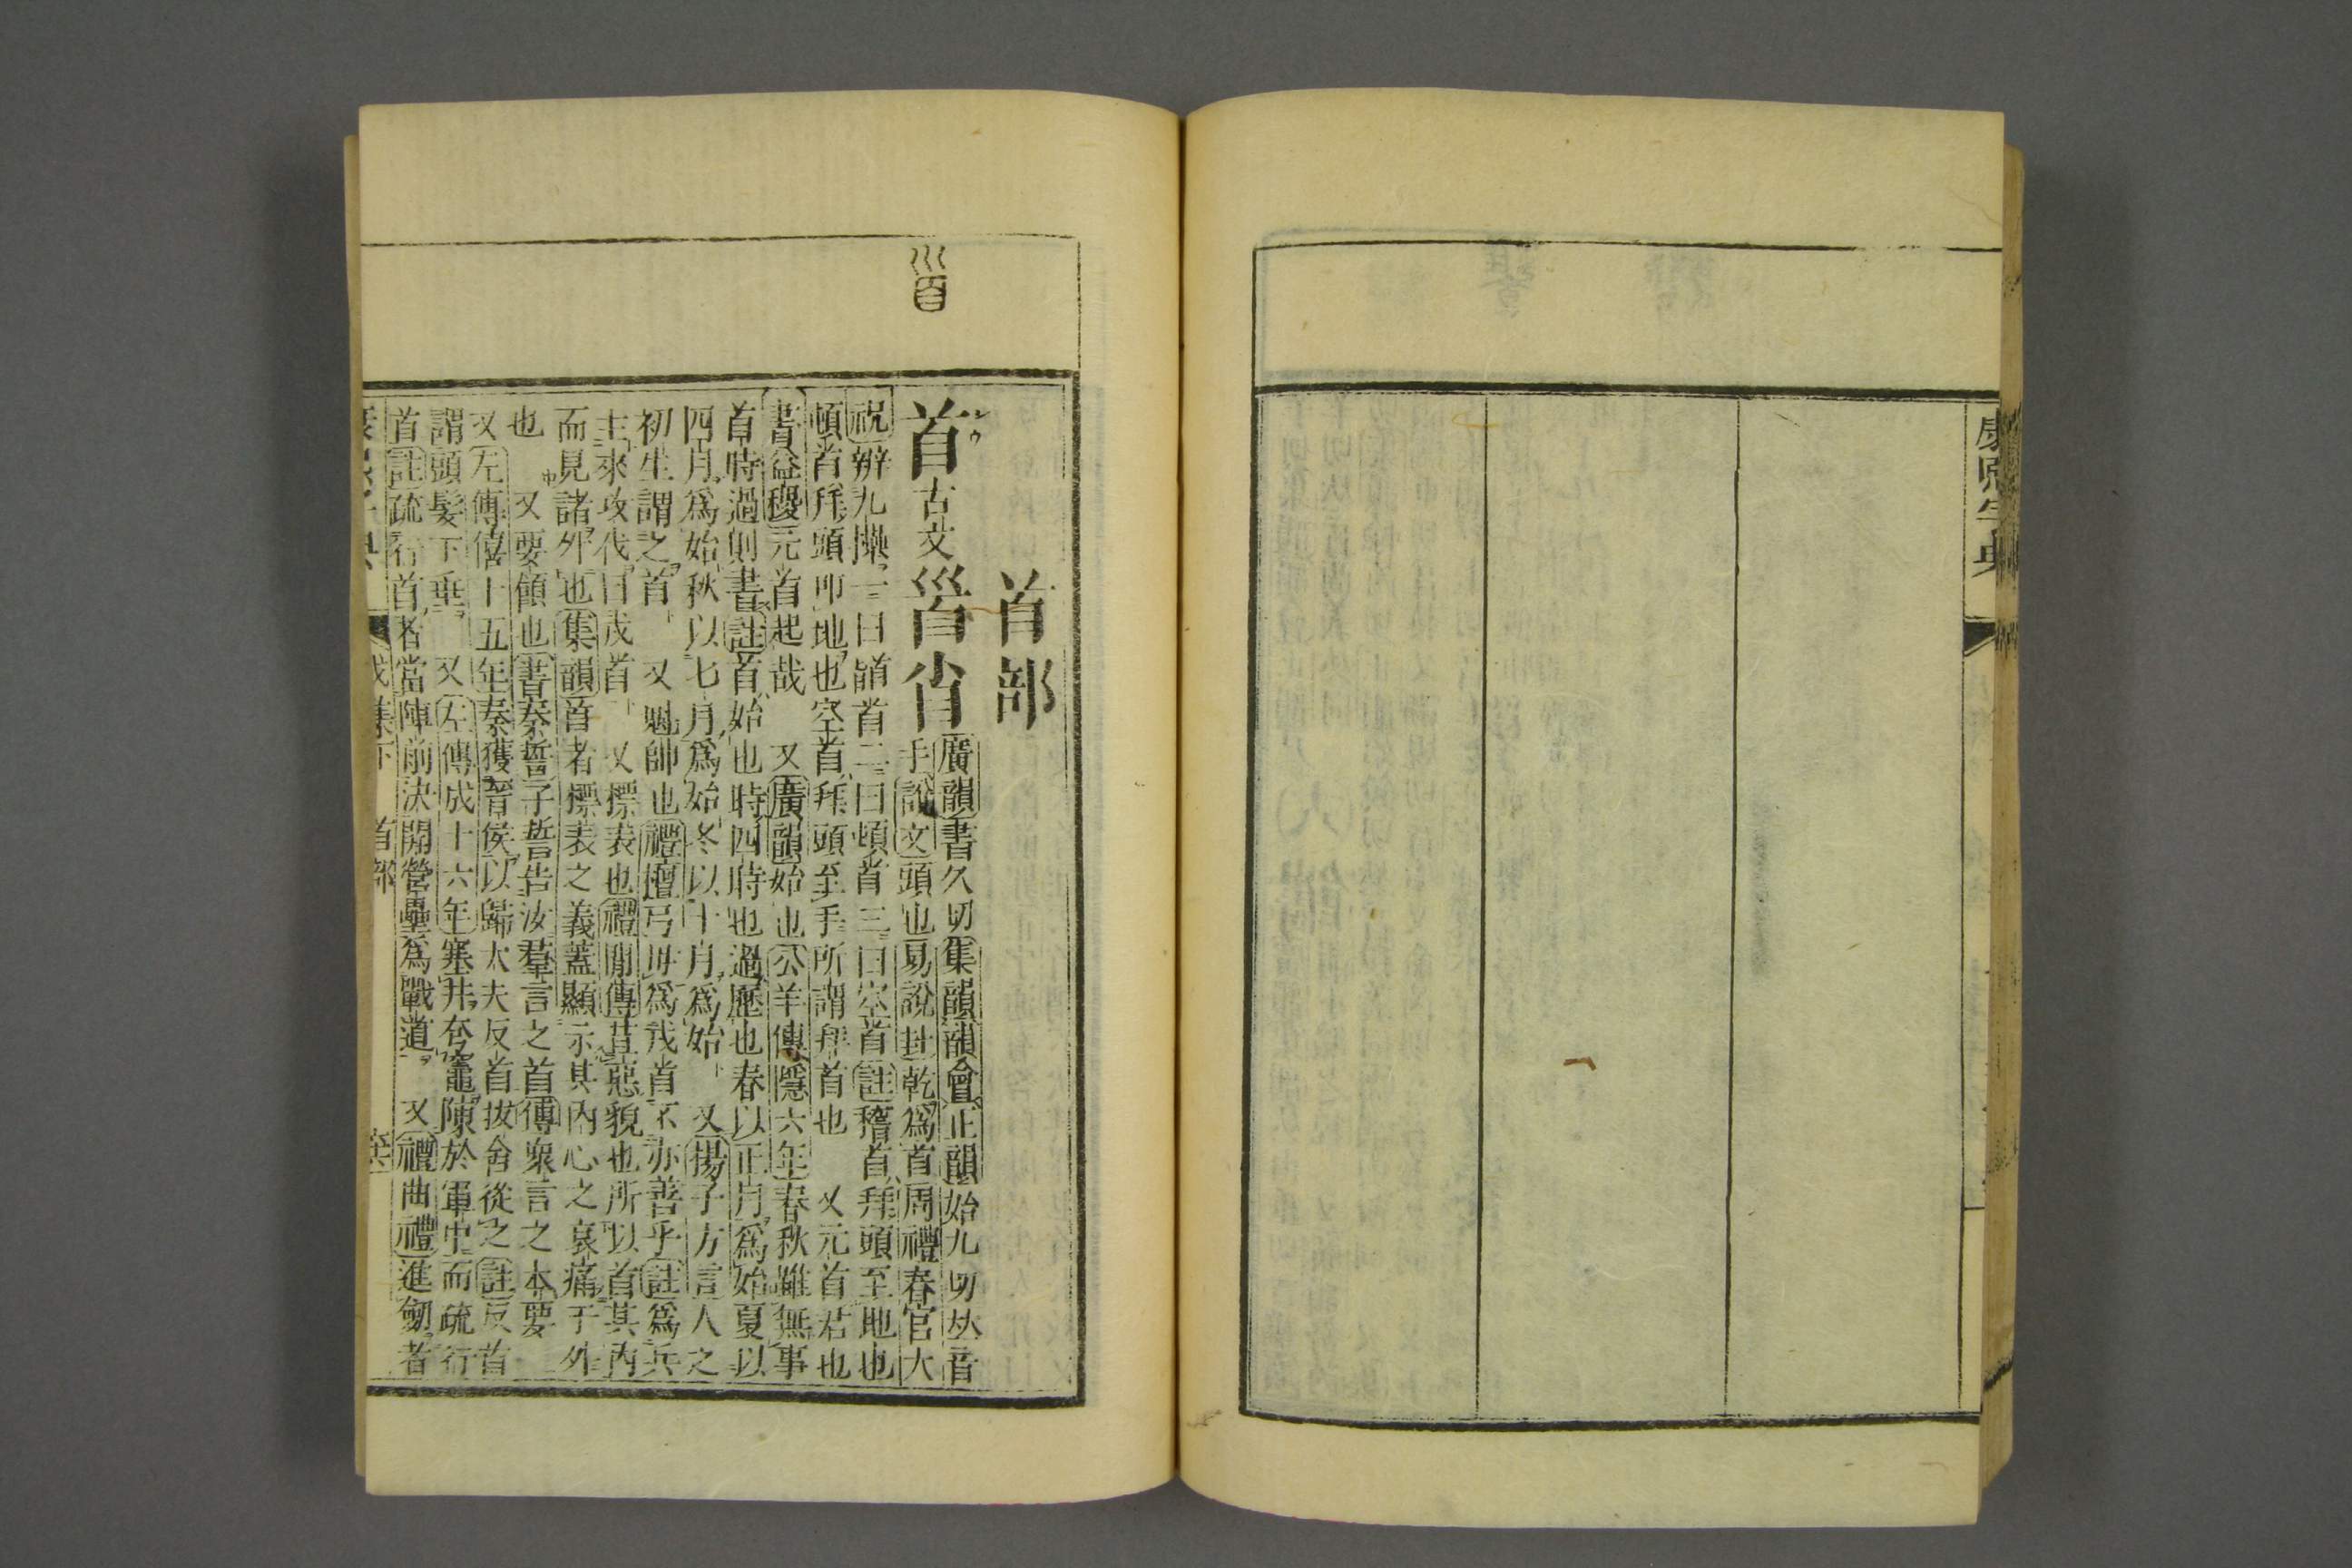 康熙字典
𩠐
首部
首古文𩠐𦣻
廣韻書久切集韻韻會正韻始九切𠀤音
手說文頭也易說卦乾爲首周禮春官大
祝辨九𢷎一曰䭫首二曰頓首三曰空首註稽首拜頭至地也
頓首拜頭叩地也空首拜頭至手所謂拜首也 又元首君也
書益稷元首起哉 又廣韻始也公羊傳隱六年春秋雖無事
首時過則書註首始也時四時也過歷也春以正月爲始夏以
四月爲始秋以七月爲始冬以十月爲始 又揚子方言人之
初生謂之首 又魁帥也禮檀弓毋爲戎首不亦善乎註爲兵
主來攻伐曰戎首 又摽表也禮閒傳苴惡貌也所以首其內
而見諸外也集韻首者摽表之義蓋顯示其內心之哀痛于外
也 又要領也書秦誓予誓告汝羣言之首傳衆言之本要
又左傳僖十五年秦獲晉侯以歸大夫反首拔舍從之註反首
謂頭髮下垂 又左傳成十六年塞井夷竈陳於軍中而疏行
首註疏行首者當陣前決開營壘爲戰道 又禮曲禮進劒者
康熙字典 戌集下 首部